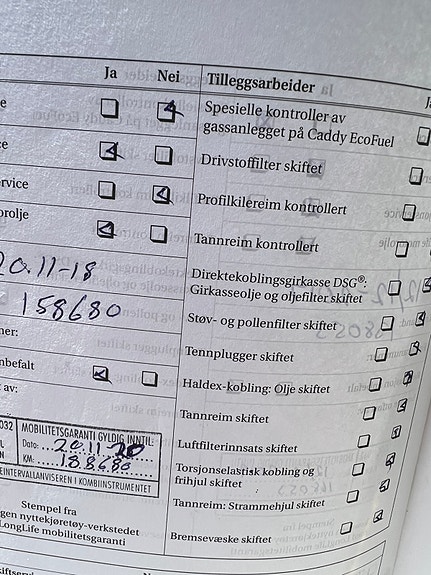 Ja Nei
Tilleggsarbeider
Spesielle kontroller av
gassanlegget på Caddy EcoFuel
Drivstoffilter skiftet
ervice
Profilkilereim kontrollert
orolje
Tannreim kontrollert
20.11-18
Direktekoblingsgirkasse DSG®:
Girkasseolje og oljefilter skiftet
158680
Støv- og pollenfilter skiftet
ner:
Tennplugger skiftet
nbefalt
Haldex-kobling: Olje skiftet
av:
Tannreim skiftet
032 MOBILITETSGARANTI GYLDIG INNTIL:
Dato: 20.11-20
KM: 188680
EINTERVALLANVISEREN I KOMBIINSTRUMENTET
Luftfilterinnsats skiftet
Torsjonselastisk kobling og
frihjul skiftet
Stempel fra
gen nyttekjøretøy-verkstedet
LongLife mobilitetsgaranti
Tannreim: Strammehjul skiftet
Bremsevæske skiftet